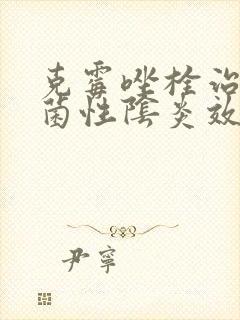 克霉唑栓治
菌性陰炎效
尹寧